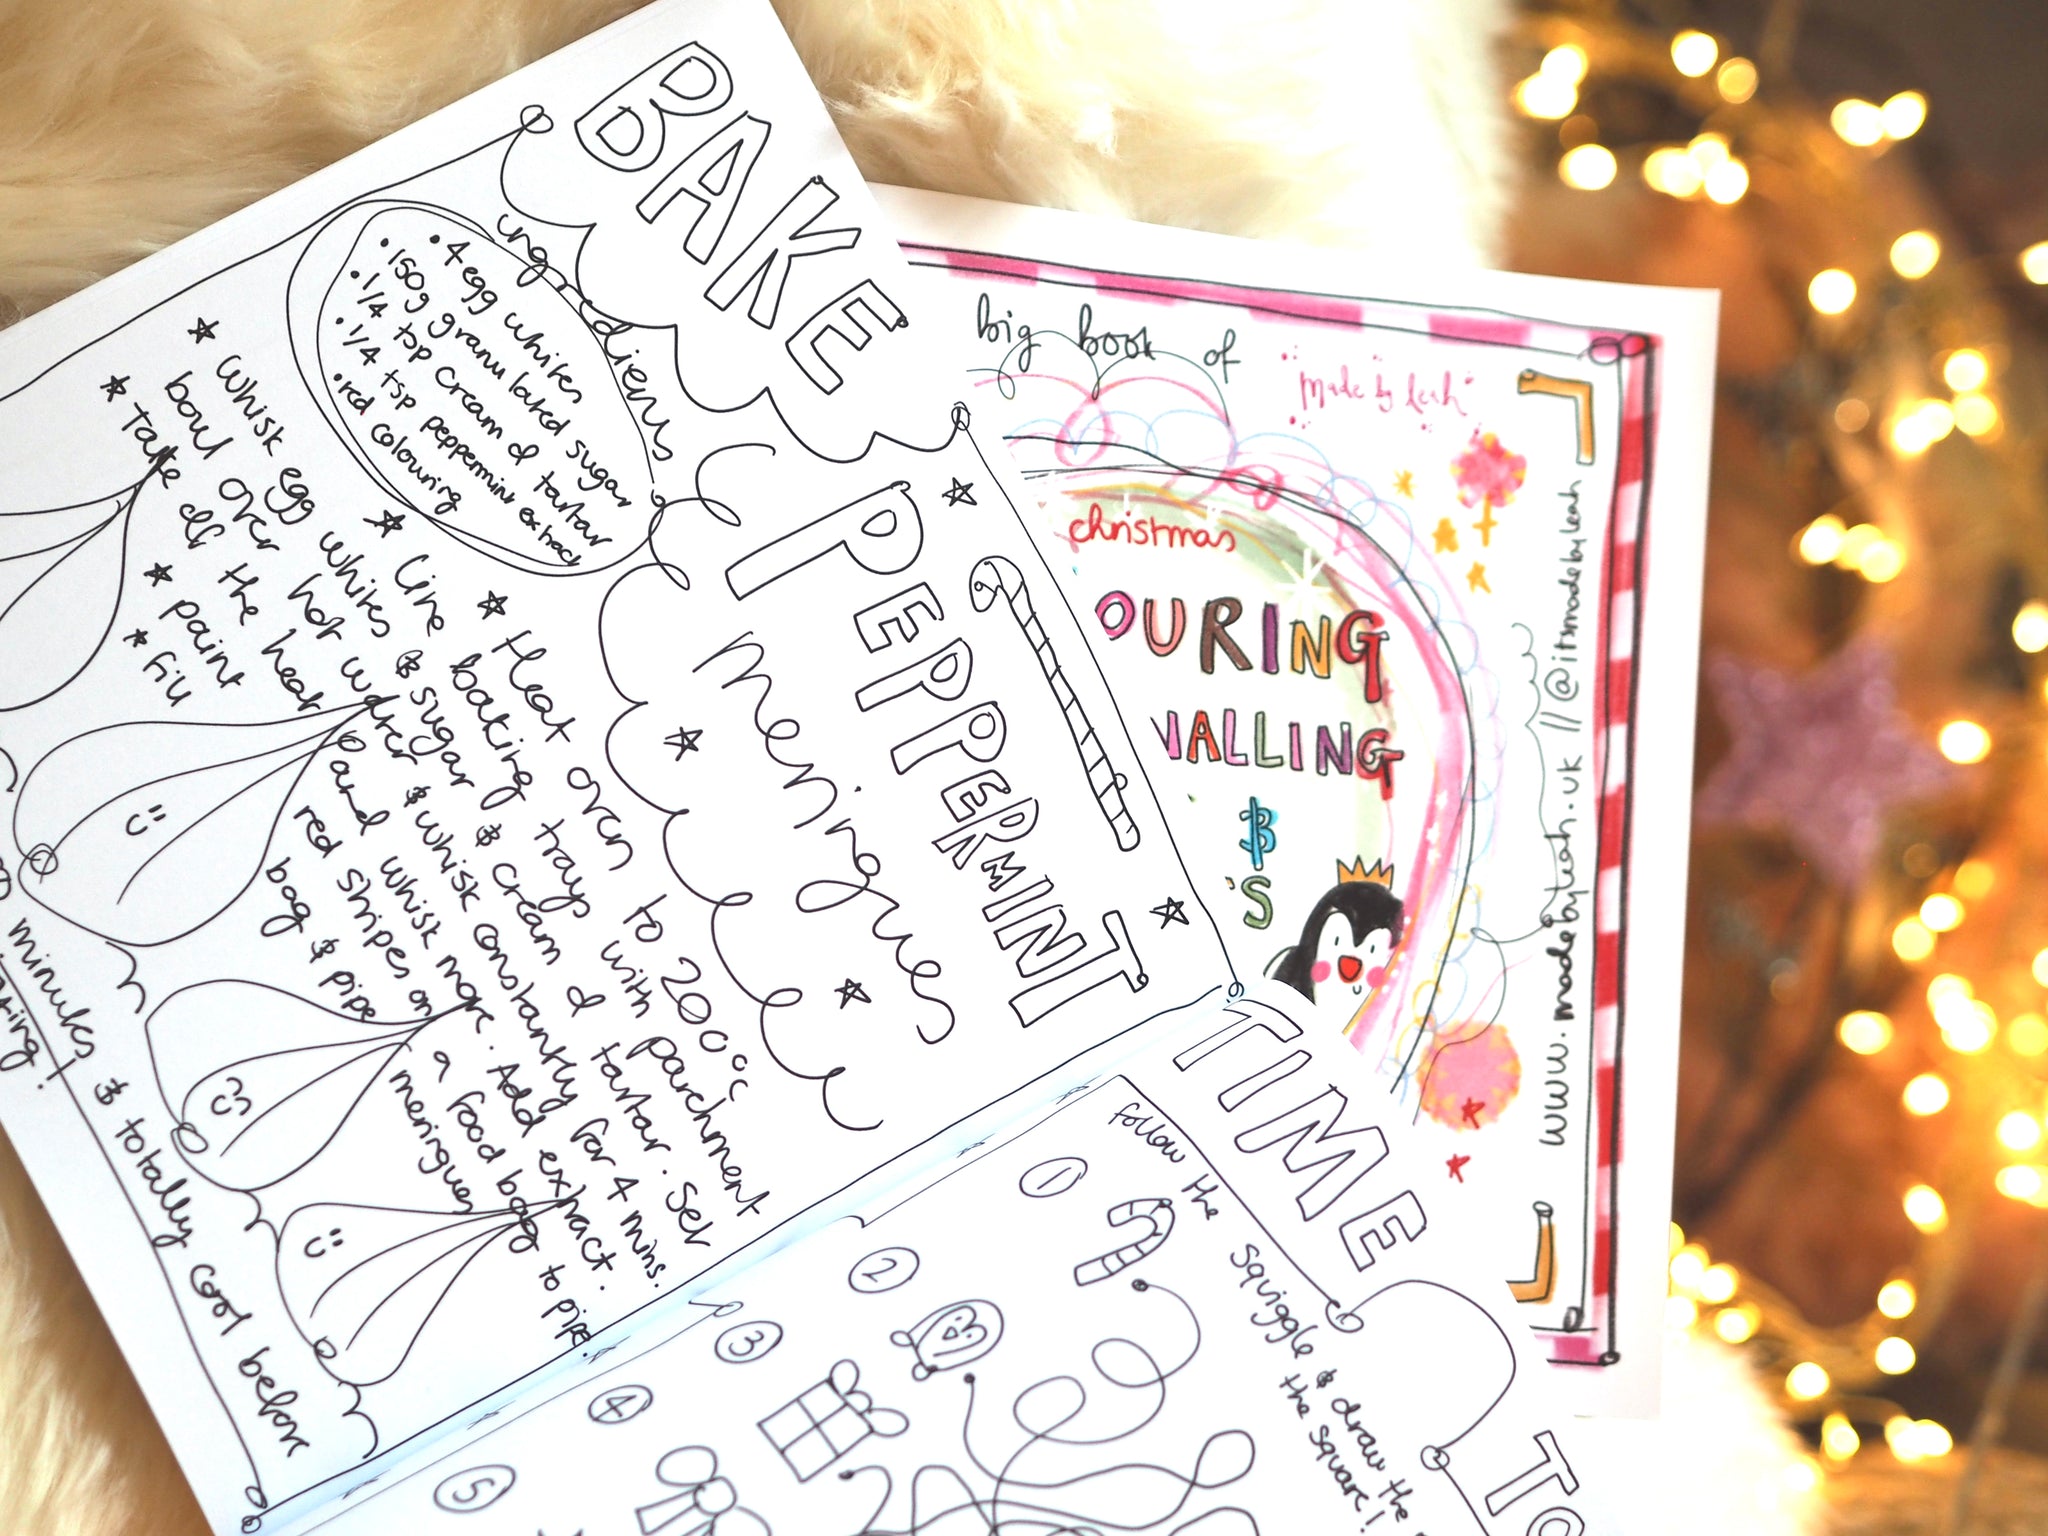 BAKE
PEPPERMINT
meringues
ingredients
• 4 egg whites
• 150g granulated sugar
• 1/4 tsp cream of tartar
• 1/4 tsp peppermint extract
• red colouring
★ Heat oven to 200°C
★ Line baking trays with parchment
★ Whisk egg whites & sugar & cream of tartar. Set
bowl over hot water & whisk constantly for 4 mins.
★ Take off the heat and whisk more. Add extract.
★ paint red stripes on a food bag to pipe.
★ Fill bag & pipe meringues
minutes & totally cool before
TIME
TO
Follow the squiggle & draw the
the square!
1
2
3
4
5
big book of
"Made by Leah"
christmas
OURING
ALLING
&
'S
www.madebyleah.uk // @itsmadebyleah